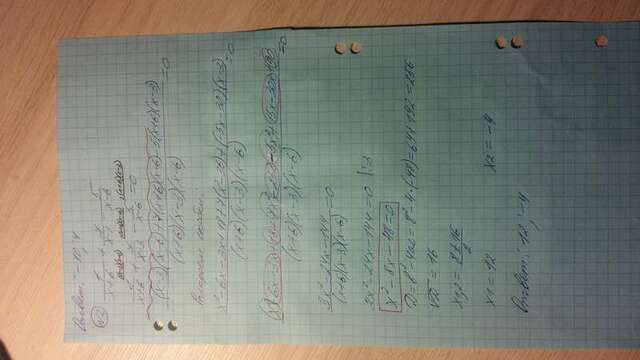 Ответ: -10; 4
№2 4/(x+6) + 4/(x-3) = 5/(x-6)
4/(x+6) + 4/(x-3) - 5/(x-6) = 0
((x-3)(x-6)+4(x+6)(x-6)-5(x+6)(x-3))/((x+6)(x-3)(x-6)) = 0
скобки:
(x²-6x-3x+18+4(x²-36)+(-5x-30)(x-3))/((x+6)(x-3)(x-6)) = 0
/((x+6)(x-3)(x-6)) = 0
(3x²-24x-144)/((x+6)(x-3)(x-6)) = 0
3x²-24x-144=0 |:3
x²-8x-48=0
D=b²-4ac=8²-4·(-48)=64+192=256
√D=16
x1,2=(8±16)/2
x1=12 x2=-4
Ответ: 12; -4